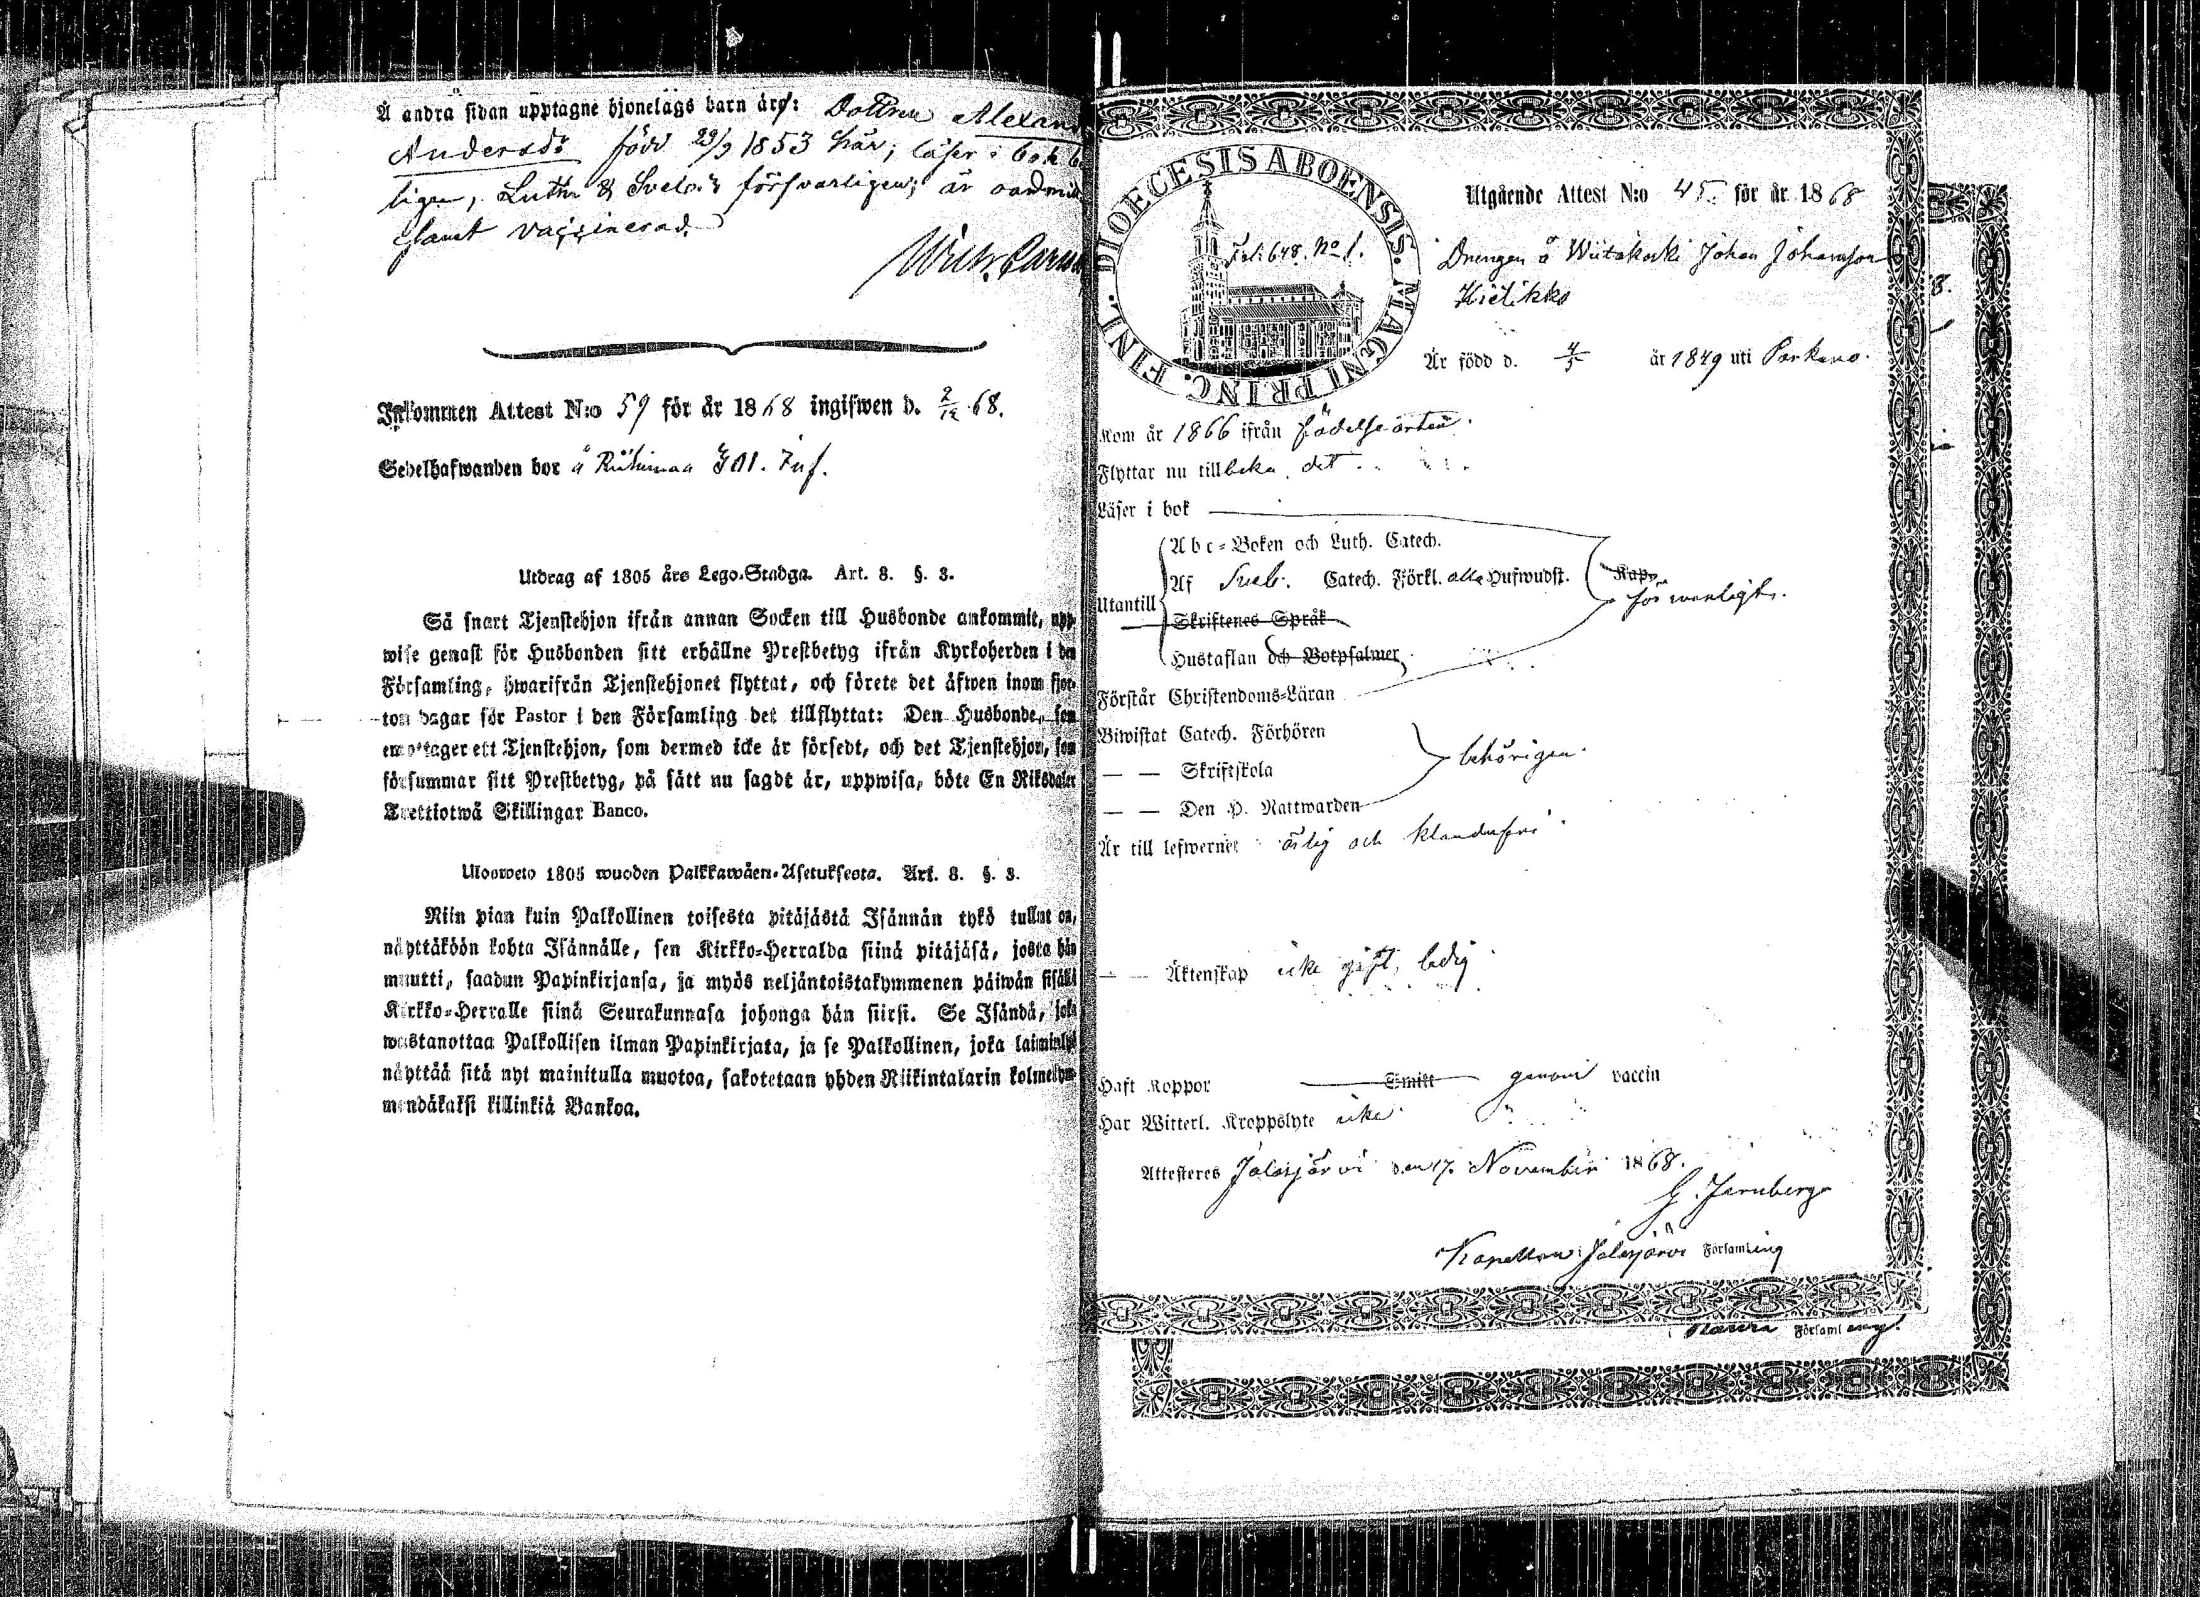 Å andra sidan upptagne hjonelags barn äro: Dottren Alexand
Andersdr född 29/9 1853 här; läser i bok b
ligen, Luthr & Svebel: försvarligen; är
samt vaccinerad.
Inkommen Attest N:o 59 för år 1868 ingifwen d. 2/12 68.
Sedelhafwanden bor å Riihimaa
Utdrag af 1805 års Lego-Stadga. Art. 8. §. 3.
Så snart Tjenstehjon ifrån annan Socken till Husbonde ankommit, upp-
wise genast för Husbonden sitt erhållne Prestbetyg ifrån Kyrkoherden i den
Församling, hwarifrån Tjenstehjonet flyttat, och förete det äfwen inom fjor-
ton dagar för Pastor i den Församling det tillflyttat: Den Husbonde, som
emottager ett Tjenstehjon, som dermed icke är försedt, och det Tjenstehjon, som
försummar sitt Prestbetyg, på sätt nu sagdt är, uppwisa, böte En Riksdaler
Trettiotwå Skillingar Banco.
Ulosweto 1805 wuoden Palkkawäen-Asetuksesta. Art. 8. §. 3.
Niin pian kuin Palkollinen toisesta pitäjästä Isännän tykö tullut on,
näyttäköön kohta Isännälle, sen Kirkko-Herralda siinä pitäjäsä, josta hän
muutti, saadun Papinkirjansa, ja myös neljäntoistakymmenen päiwän sisällä
Kirkko-Herralle siinä Seurakunnasa johonga hän siirsi. Se Isändä, joka
wastanottaa Palkollisen ilman Papinkirjata, ja se Palkollinen, joka laiminlyö
näyttää sitä nyt mainitulla muotoa, sakotetaan yhden Riikintalarin kolmekym-
mendäkaksi killinkiä Bankoa.
DIOECESIS ABOENSIS. MAGNI PRINC. FINL.
Fol: 648. No 1.
Utgående Attest N:o 45. för år 1868
Drengen å Wiitakoski Johan Johansson
Kielikko
Är född d. 4/5 år 1849 uti Parkano.
Kom år 1866 ifrån födelseorten.
Flyttar nu tillbaka dit
Läser i bok
Abc-Boken och Luth. Catech.
Utantill Af Sveb. Catech. Förkl. alla Hufwudst.
försvarligt.
Skriftenes Språk
Hustaflan och Botpsalmer
Förstår Christendoms-Läran
Biwistat Catech. Förhören
— — Skriftskola behörigen.
— — Den H. Nattwarden
Är till lefwernet ärlig och klanderfri
— — Äktenskap icke gift, ledig
Haft Koppor Smitt genom vaccin
Har Witterl. Kroppslyte icke
Attesteres Jalasjärvi den 17. November 1868.
G. Jernberg
Kapellan i Jalasjärvi Församling
i Församling.